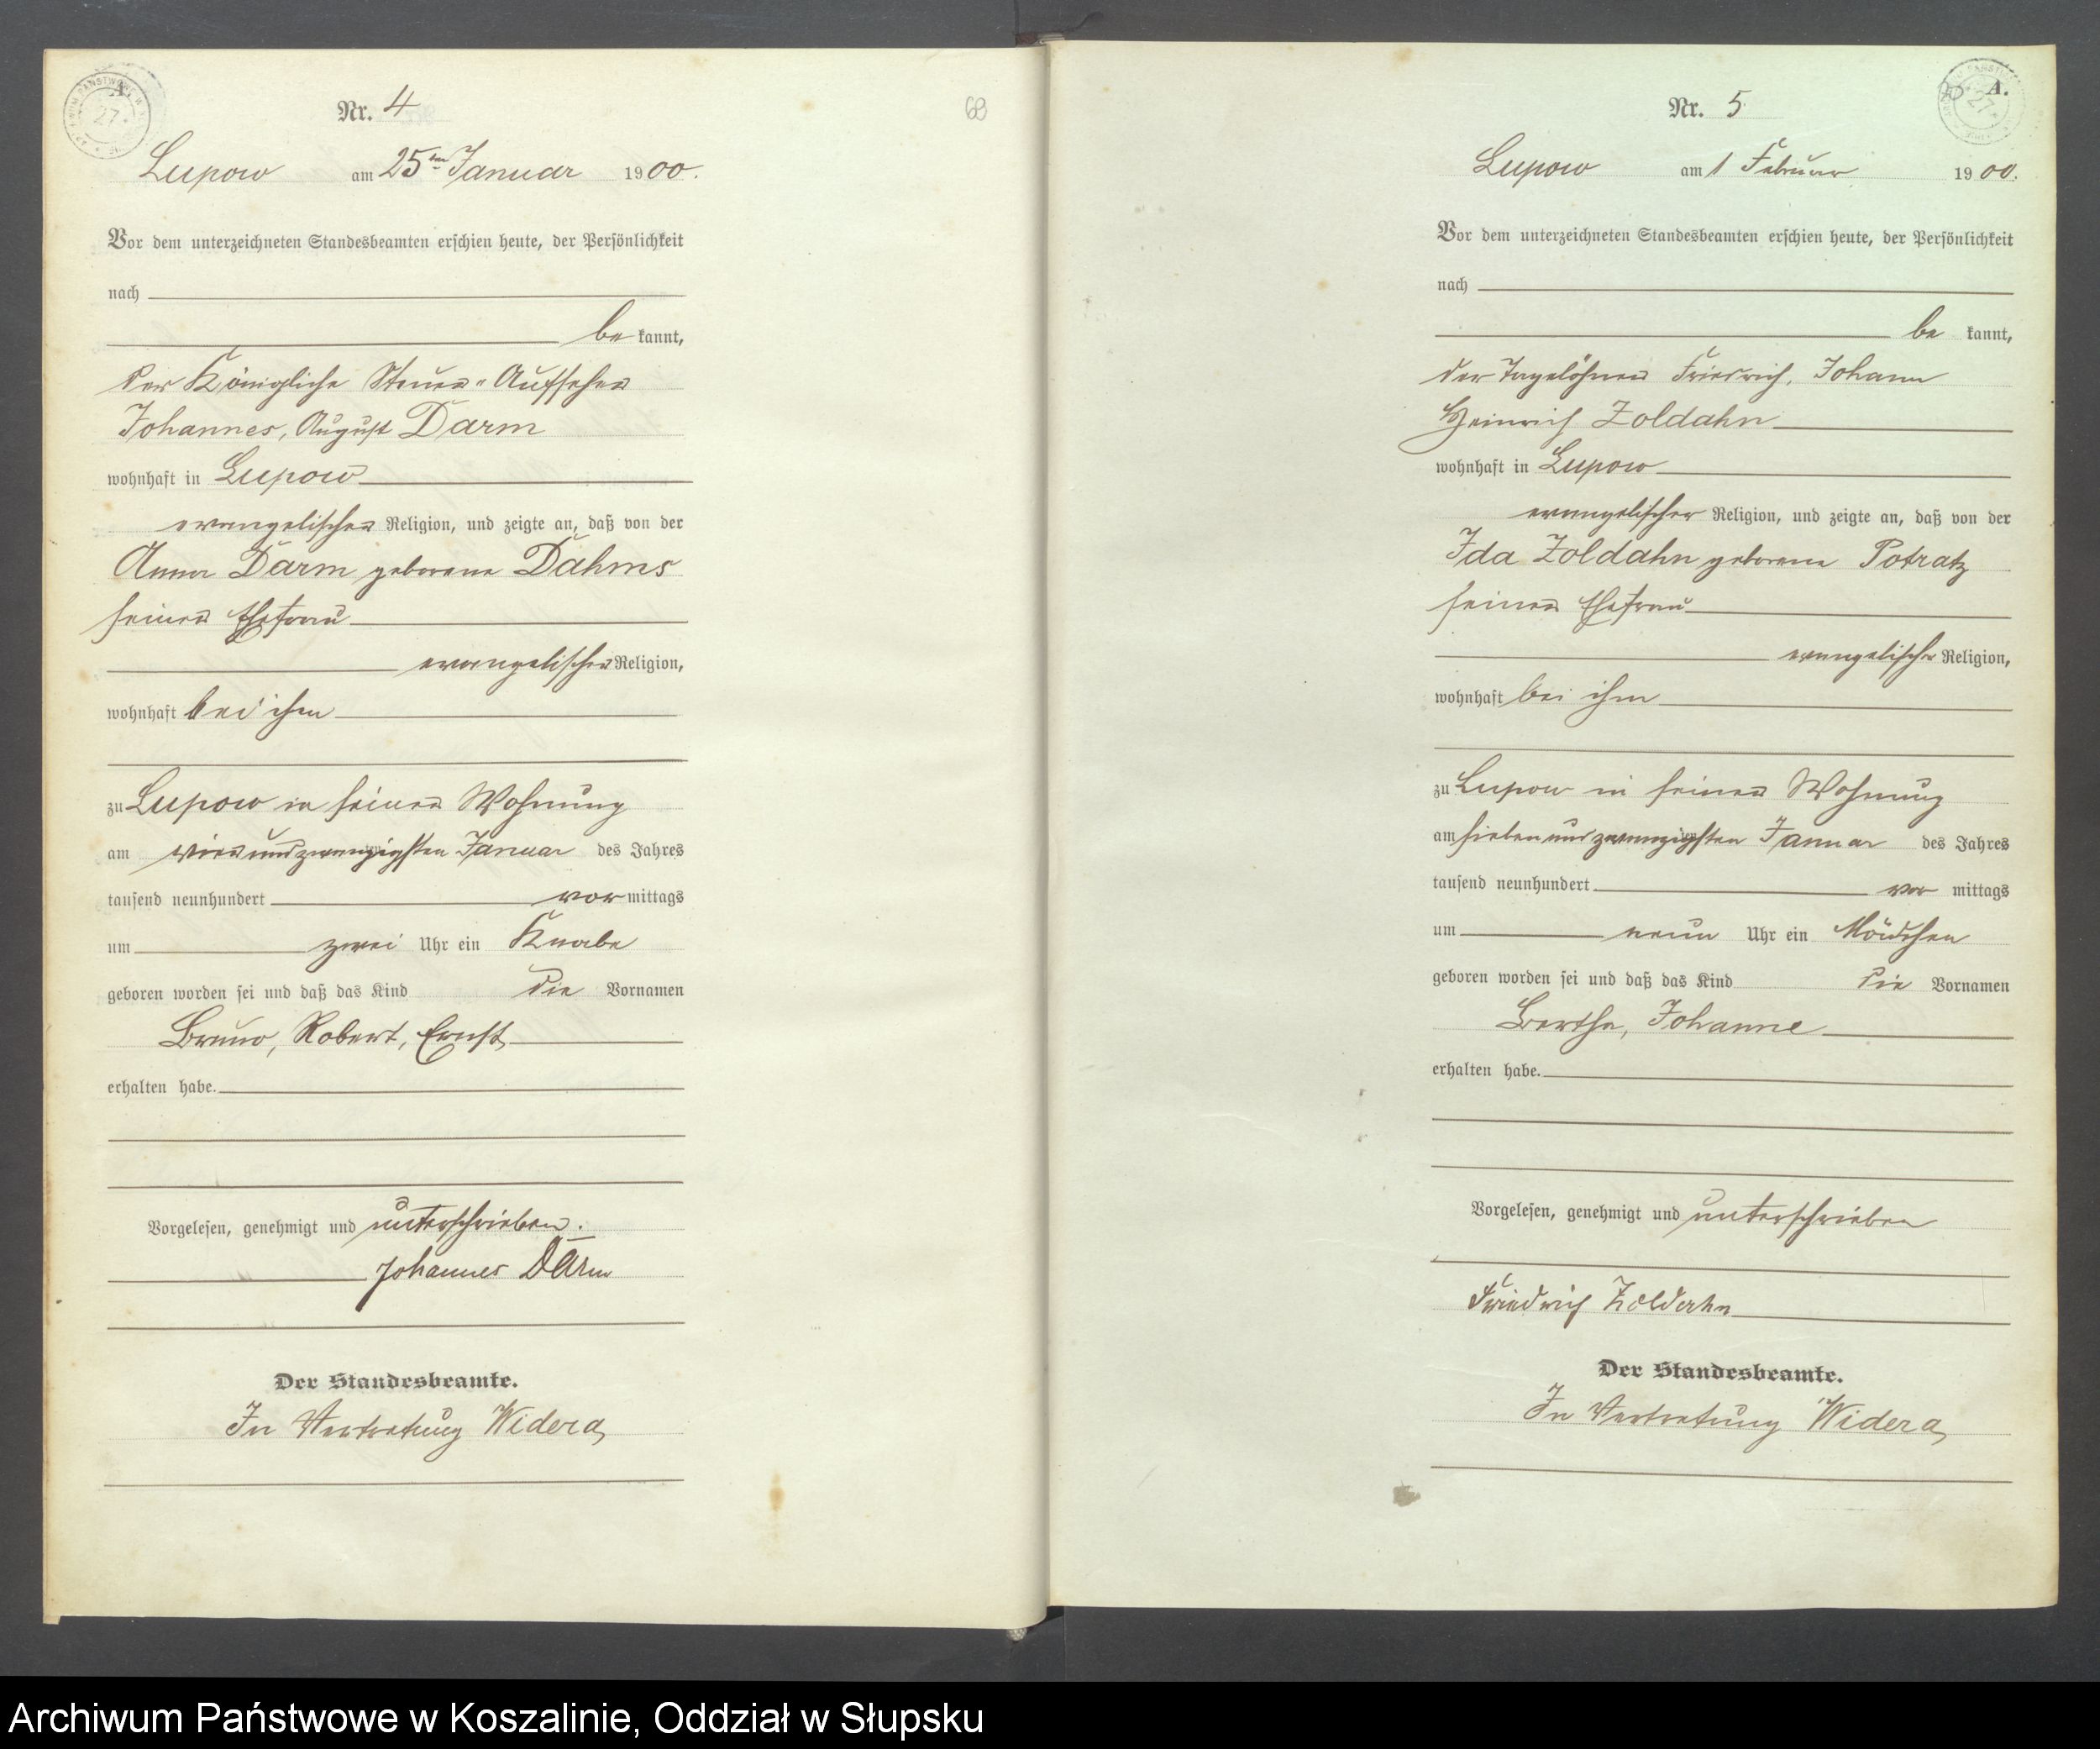 A.
Nr. 4
Lupow am 25ten Januar 1900.
Vor dem unterzeichneten Standesbeamten erschien heute, der Persönlichkeit
nach
be kannt,
der Königliche Steuer-Aufseher
Johannes, August Darm
wohnhaft in Lupow
evangelischer Religion, und zeigte an, daß von der
Anna Darm geborene Dahms
seiner Ehefrau
evangelischer Religion,
wohnhaft bei ihm
zu Lupow in seiner Wohnung
am vierundzwanzigsten Januar des Jahres
tausend neunhundert vor mittags
um zwei Uhr ein Knabe
geboren worden sei und daß das Kind die Vornamen
Bruno, Robert, Ernst
erhalten habe.
Vorgelesen, genehmigt und unterschrieben.
Johannes Darm
Der Standesbeamte.
In Vertretung Widera
69
A.
Nr. 5
Lupow am 1 Februar 1900.
Vor dem unterzeichneten Standesbeamten erschien heute, der Persönlichkeit
nach
be kannt,
der Tagelöhner Friedrich, Johann
Heinrich Zoldahn
wohnhaft in Lupow
evangelischer Religion, und zeigte an, daß von der
Ida Zoldahn geborene Potratz
seiner Ehefrau
evangelischer Religion,
wohnhaft bei ihm
zu Lupow in seiner Wohnung
am siebenundzwanzigsten Januar des Jahres
tausend neunhundert vor mittags
um neun Uhr ein Mädchen
geboren worden sei und daß das Kind die Vornamen
Bertha, Johanne
erhalten habe.
Vorgelesen, genehmigt und unterschrieben
Friedrich Zoldahn
Der Standesbeamte.
In Vertretung Widera
Archiwum Państwowe w Koszalinie, Oddział w Słupsku